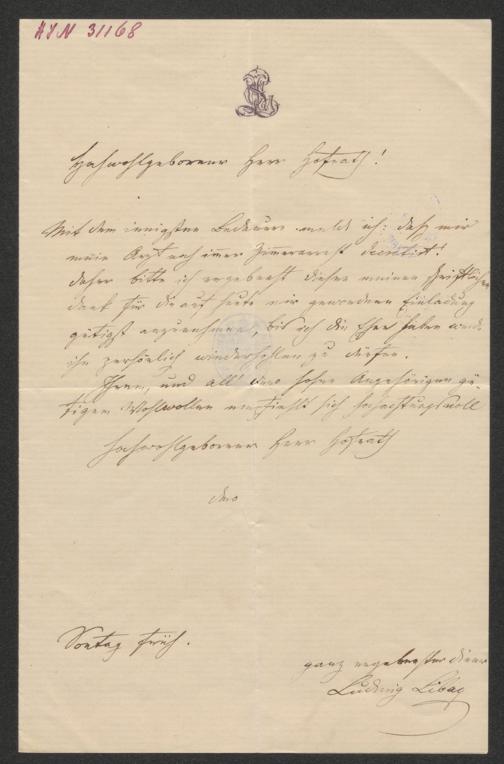 HIN 31168
LL
Hochwohlgeborener Herr Hofrath!
Mit dem innigsten Bedauern melde ich: daß mir
mein Arzt noch immer Zimmerarrest decretirt!
daher bitte ich ergebenst diesen meinen schriftlichen
Dank für die auf heute mir gewordene Einladung
gütigst anzunehmen, bis ich die Ehre haben werde
ihn persönlich wiederholen zu dürfen.
Ihrem, und all' dero hohen Angehörigen gü-
tigem Wohlwollen empfiehlt sich hochachtungsvoll
Hochwohlgeborener Herr Hofrath
dero
Sontag Früh.
ganz ergebenster Diener
Ludwig Libay